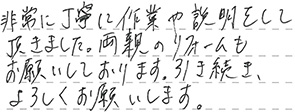 非常に丁寧に作業や説明をして
頂きました。両親のリフォームも
お願いしております。引き続き、
よろしくお願いします。